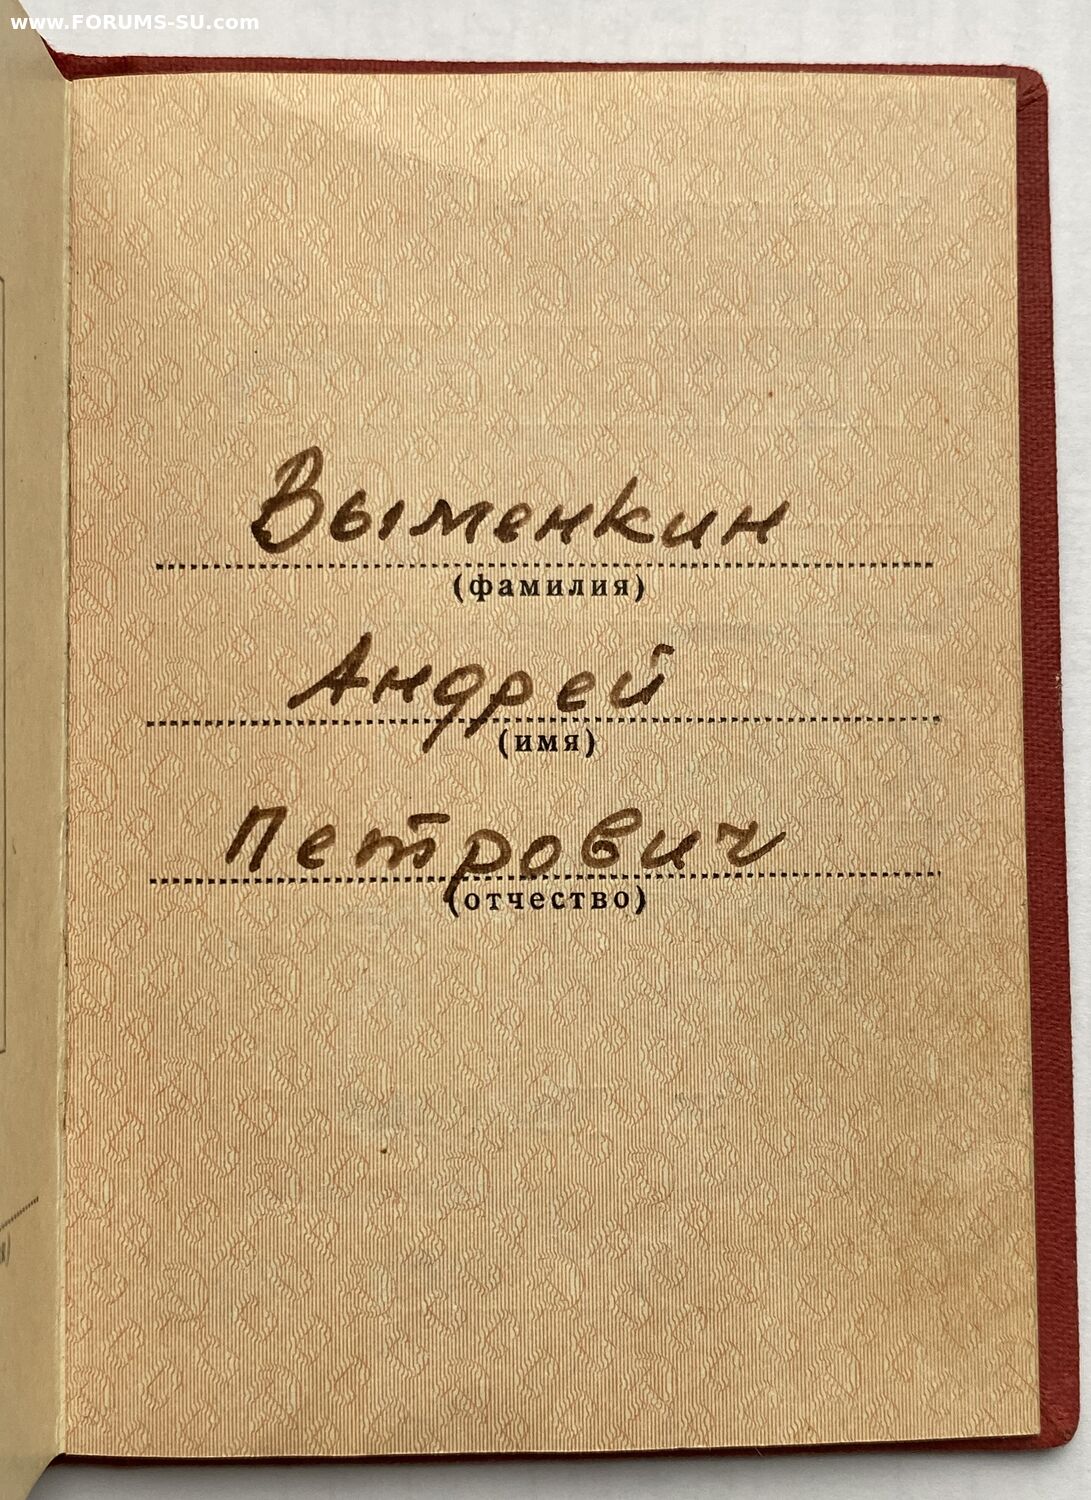 www.FORUMS-SU.com
Выменкин
(фамилия)
Андрей
(имя)
Петрович
(отчество)